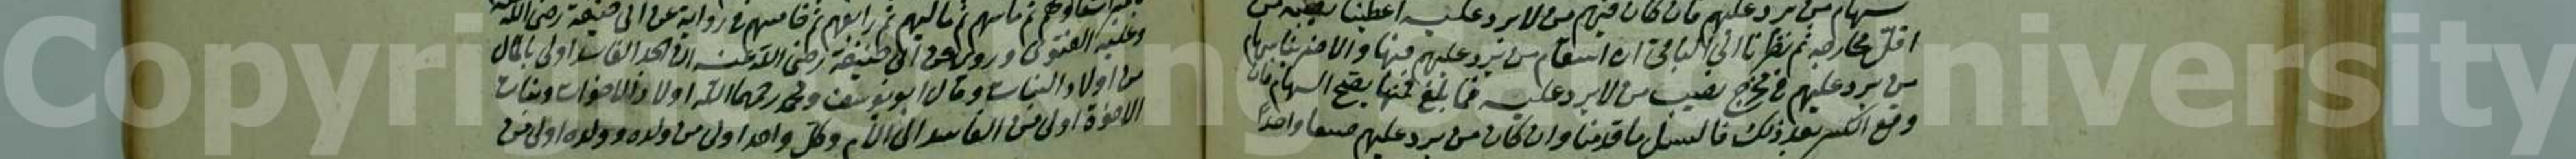 سهام من يرد عليهم فان كان فيهم من لا يرد عليه اعطينا نصيبه من
اقل مخارجه ثم نظرنا الى الباقي ان استقام من يرد عليهم فيها والا ضربنا سهام
من يرد عليهم في مخرج نصيب من لا يرد عليه فما بلغ فمنها يصح السهام فان
وقع الكسر بعد ذلك فالسبيل ما قدمنا وان كان من يرد عليهم صنفا واحدا
ثم رابعهم ثم خامسهم في رواية عن ابي حنيفة رضى الله
وعليه الفتوى وروى عن ابي حنيفة رضى الله عنه ان الجد الفاسد اولى بالمال
من اولاد البنات وقال ابو يوسف ومحمد رحمهما الله اولاد الاخوات وبنات
الاخوة اولى من الفاسد الى الام وكل واحد اولى من ولده وولده اولى من
Copyri University